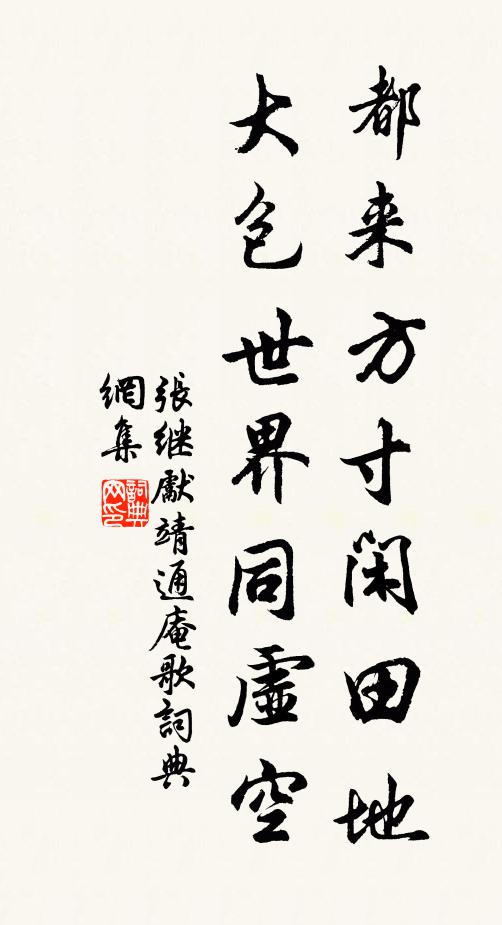 都来方寸闲田地
大包世界同虚空
張继獻靖通庵歌詞典
網集
詞典
网印